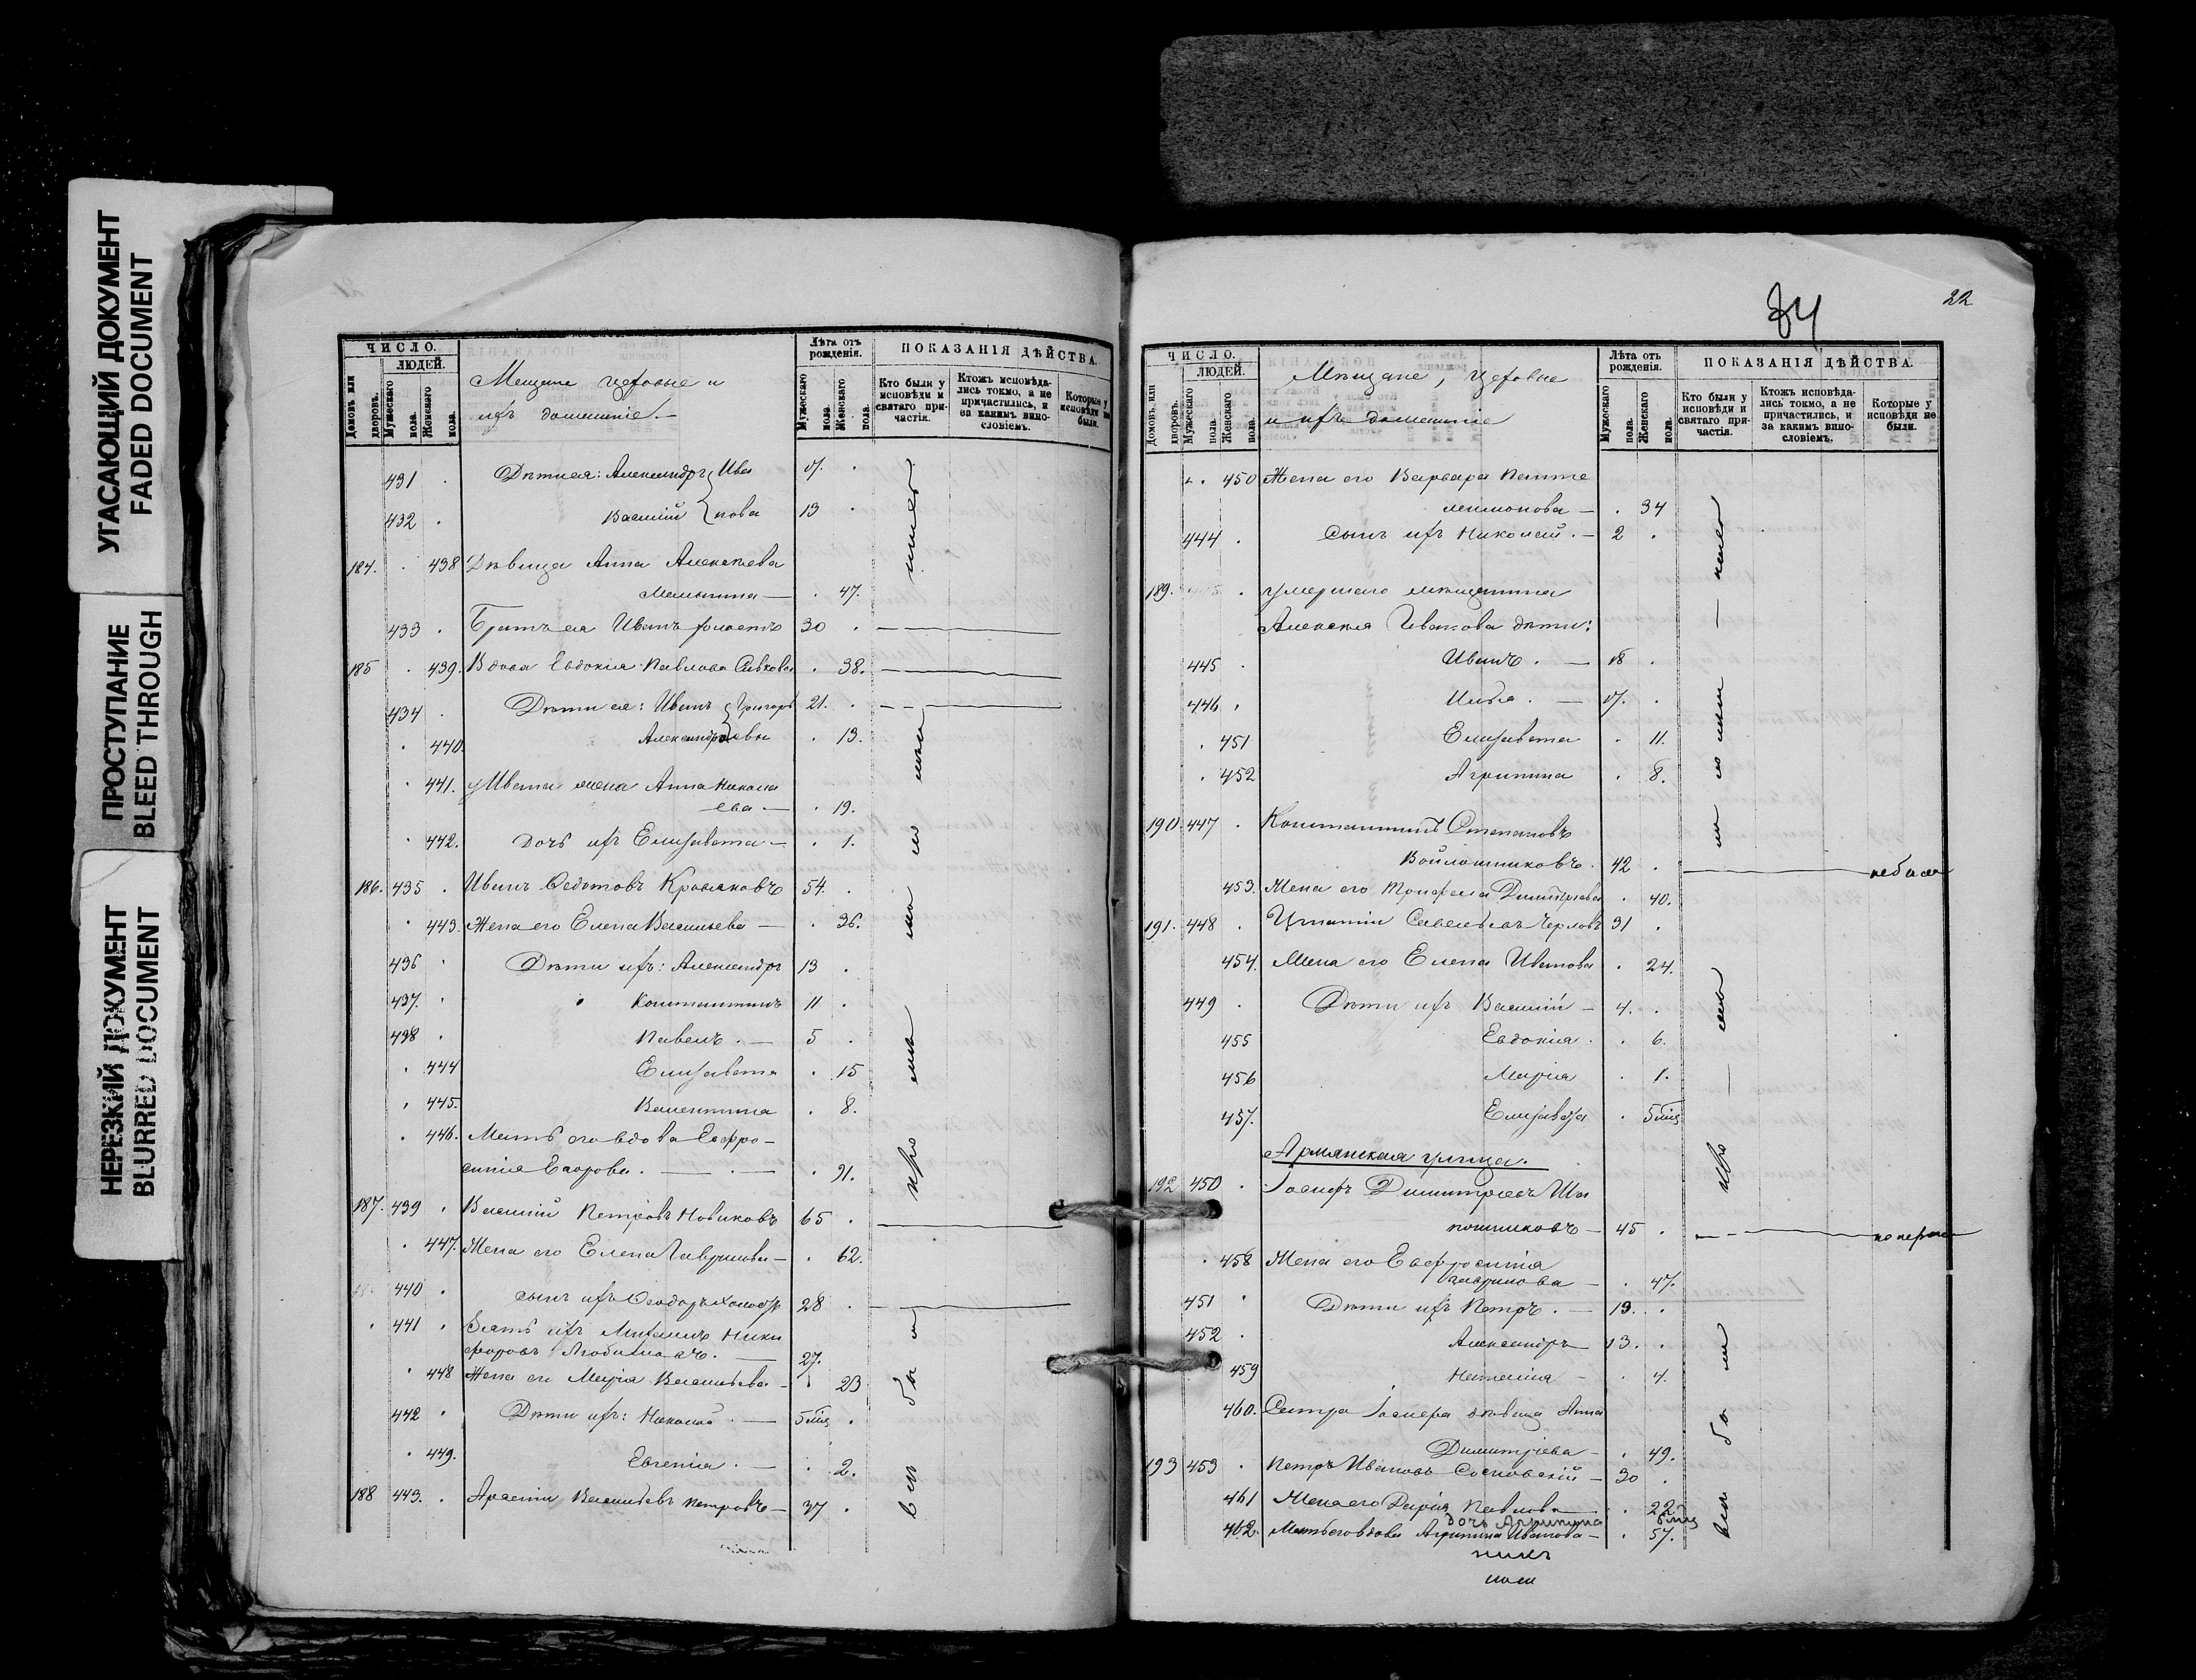 УГАСАЮЩИЙ ДОКУМЕНТ
FADED DOCUMENT
ПРОСТУПАНИЕ
BLEED THROUGH
НЕРЕЗКИЙ ДОКУМЕНТ
BLURRED DOCUMENT
ЧИСЛО.
ЛЮДЕЙ.
Домовъ или дворовъ.
Мужескаго пола.
Женскаго пола.
Мещане цеховые и
ихъ домашніе.
Лѣта отъ рожденія.
Мужескаго пола.
Женскаго пола.
ПОКАЗАНІЯ ДѢЙСТВА.
Кто были у исповѣди и святаго причастія.
Ктожъ исповѣдались токмо, а не причастились, и за какимъ винословіемъ.
Которые у исповѣди не были.
431 Дѣти ея: Александръ Ива
432 Василій нова 13
184. 438 Дѣвица Анна Алексѣева
47.
433 Братъ ея Иванъ 30
185 439. Вдова Евдокія Павлова 38.
434 Дѣти ея: Иванъ Григорь 21.
440. Александра евы 13.
441. у Ивана жена Анна Никола
ева 19.
442. Дочь ихъ Елизавета 1.
186. 435 Иванъ Ѳедотовъ 54.
443. Жена его Елена Васильева 36.
436 Дѣти ихъ: Александръ 13
437. Константинъ 11
438 Павелъ 5
444 Елизавета 15
445. Валентина 8.
446. Мать его вдова Евфро-
синія Егорова. 91.
187. 439 Василій Петровъ Новиковъ 65
447. Жена его Елена Гаврилова 62.
440 сынъ ихъ Ѳеодоръ 28
441 Зять ихъ Михаилъ Ники
форовъ 27.
448 Жена его Марія Васильева 23
442 Дѣти ихъ: Николай 5 мѣс
449. Евгенія 2.
188 443. Васильевъ Петровъ 37
84
22
ЧИСЛО.
ЛЮДЕЙ.
Домовъ или дворовъ.
Мужескаго пола.
Женскаго пола.
Мѣщане, цеховые
и ихъ домашніе
Лѣта отъ рожденія.
Мужескаго пола.
Женскаго пола.
ПОКАЗАНІЯ ДѢЙСТВА.
Кто были у исповѣди и святаго причастія.
Ктожъ исповѣдались токмо, а не причастились, и за какимъ винословіемъ.
Которые у исповѣди не были.
450 Жена его Варвара Панте
леимонова 34
444 Сынъ ихъ Николай. 2
189. Умершаго мѣщанина
Алексѣя Иванова дѣти:
445 Иванъ. 18
446 Илья. 17.
451 Елизавета 11.
452 Агрипина 8.
190. 447 Константинъ Степановъ
Войлошниковъ. 42 не был
453. Жена его Димитріева 40.
191. 448 Игнатій Савельевъ 31
454. Жена его Елена Иванова 24.
449 Дѣти ихъ Василій 4.
455 Евдокія 6.
456 Марія 1.
457. Елизавета 5 мѣс
Армянская улица.
192 450 Іосифъ Димитріевъ Ша
пошниковъ 45
458 Жена его Евфросинія
Гаврилова 47.
451 Дѣти ихъ Петръ. 19.
452 Александръ 13.
459 Наталія 4.
460. Сестра Іосифа дѣвица Анна
Димитріева 49.
193 453 Петръ Ивановъ Сосновскій 30
461 Жена его Дарія Павлова 22
дочь Агрипина
462. Мать его вдова Агрипина Иванова 57.